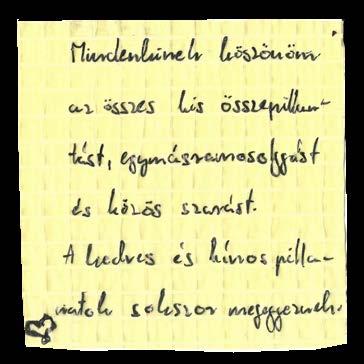 Mindenkinek köszönöm
az összes kis összepillan-
tást, egymásramosolygást
és közös szarást.
A kedves és kínos pilla-
natok sokszor megegyeznek.